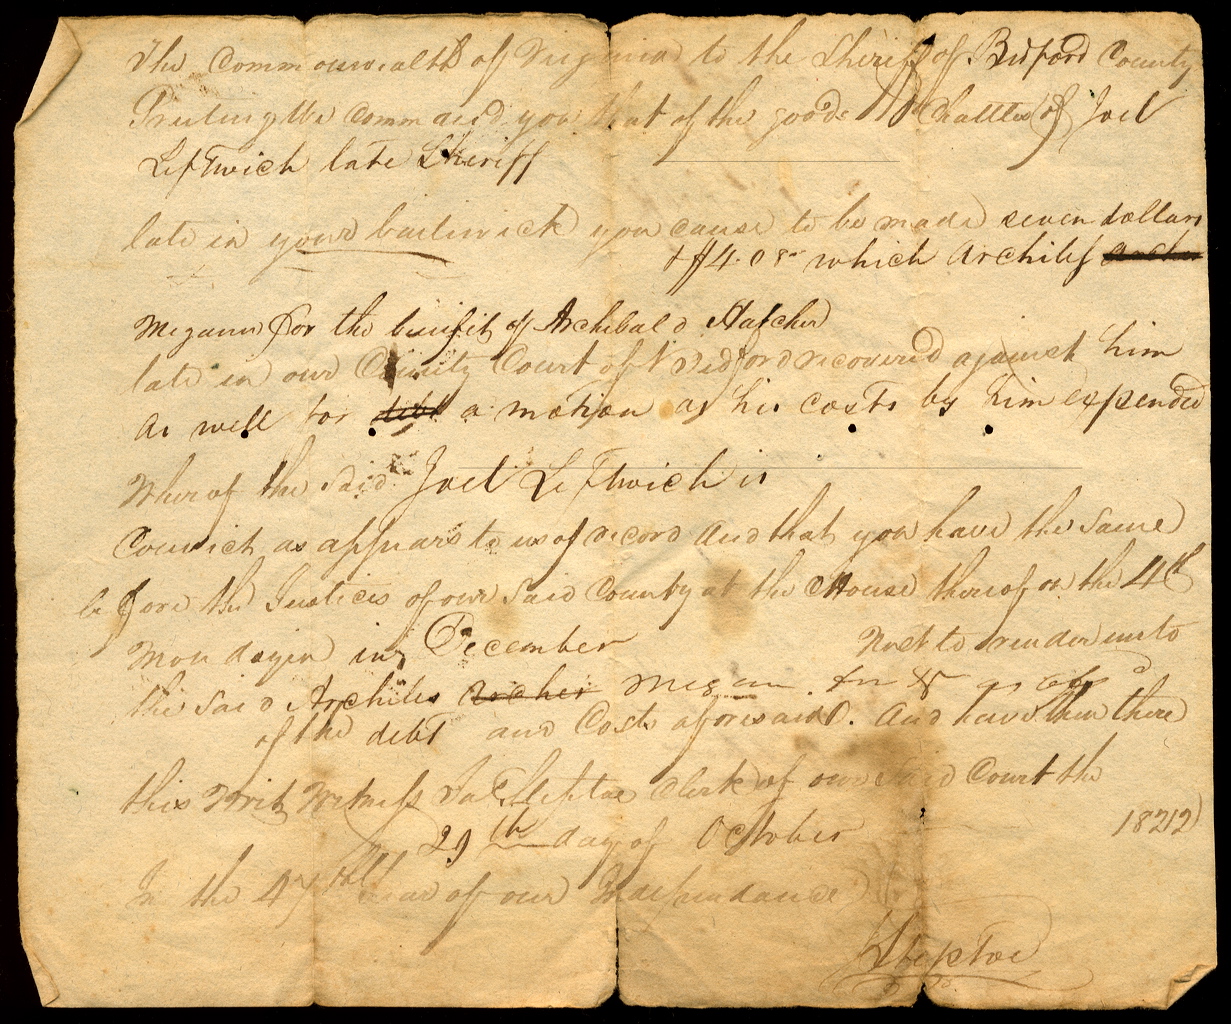 The Commonwealth of Virginia to the Sheriff of Bedford County
Greeting We Command you that of the goods & Chattles of Joel
Leftwich late Sheriff
late in your bailiwick you cause to be made seven dollars
& $4.08 which Archiles Archer
Megann for the benifit of Archibald Hatcher
late in our County Court of Bedford recovered against him
As well for debt a motion as his costs by him expended
Wherof the Said Joel Leftwich is
Convict as appears to us of record And that you have the Same
before the Justices of our Said County at the CHouse therof on the 4th
Monday in December Next to render unto
the Said Archiles Archer Megann for &c as afsd
of the debt and Costs aforesaid. And have then there
this Writ Witness Jas Steptoe Clerk of our Said Court the
29th day of October 1822
In the 47th Year of our Independance
J Steptoe